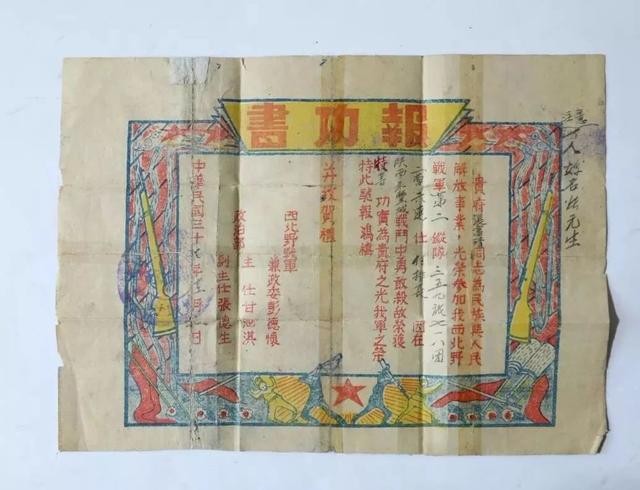 報功書
貴府張富清同志為民族與人民
解放事業，光榮參加我西北野
戰軍第二縱隊三五九旅七一八團
二營六連任付排長因在
陝西永豐城戰鬥中勇敢殺敵榮獲
特等功實為貴府之光我軍之榮
特此馳報鴻禧
并致賀禮
西北野戰軍
兼政委彭德懷
政治部
主任甘泗淇
副主任張德生
中華民國三十七年十二月 日